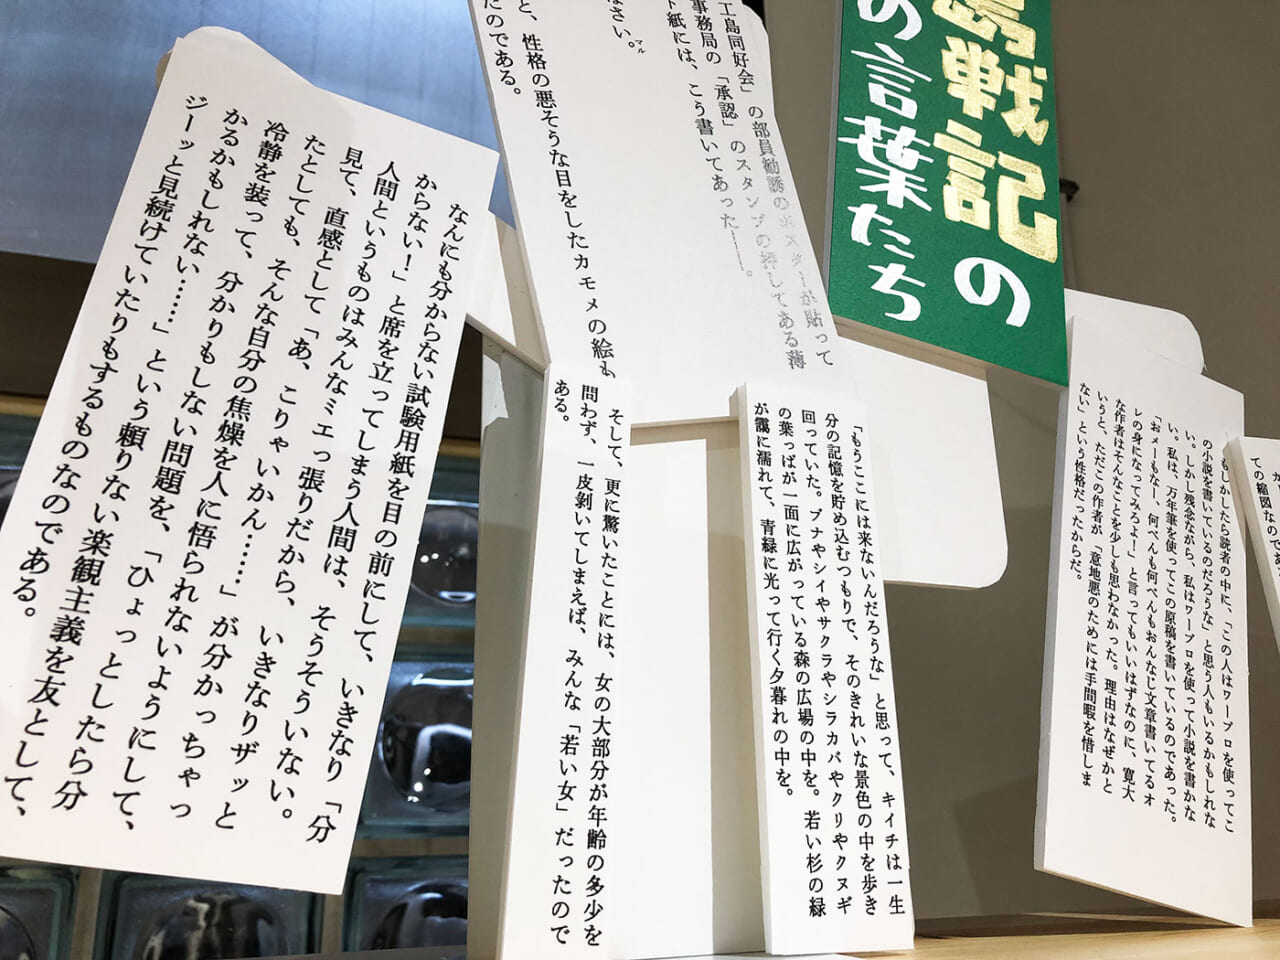 島戦記の
の言葉たち
ての縮図なのであ
もしかしたら読者の中に、「この人はワープロを使ってこ
の小説を書いているのだろうな」と思う人もいるかもしれな
い。しかし残念ながら、私はワープロを使って小説を書かな
い。私は、万年筆を使ってこの原稿を書いているのであった。
「おメーもなー、何べんも何べんもおんなじ文章書いてるオ
レの身になってみろよ！」と言ってもいいはずなのに、寛大
な作者はそんなことを少しも思わなかった。理由はなぜかと
いうと、ただこの作者が「意地悪のためには手間暇を惜しま
ない」という性格だったからだ。
工島同好会」の部員勧誘のポスターが貼って
事務局の「承認」のスタンプの押してある薄
ト紙には、こう書いてあった――。
なさい。マル
と、性格の悪そうな目をしたカモメの絵も
たのである。
「もうここには来ないんだろうな」と思って、キイチは一生
分の記憶を貯め込むつもりで、そのきれいな景色の中を歩き
回っていた。ブナやシイやサクラやシラカバやクリやクヌギ
の葉っぱが一面に広がっている森の広場の中を。若い杉の緑
が靄に濡れて、青緑に光って行く夕暮れの中を。
そして、更に驚いたことには、女の大部分が年齢の多少を
問わず、一皮剝いてしまえば、みんな「若い女」だったので
ある。
なんにも分からない試験用紙を目の前にして、いきなり「分
からない！」と席を立ってしまう人間は、そうそういない。
人間というものはみんなミエっ張りだから、いきなりザッと
見て、直感として「あ、こりゃいかん……」が分かっちゃっ
たとしても、そんな自分の焦燥を人に悟られないようにして、
冷静を装って、分かりもしない問題を、「ひょっとしたら分
かるかもしれない……」という頼りない楽観主義を友として、
ジーッと見続けていたりもするものなのである。